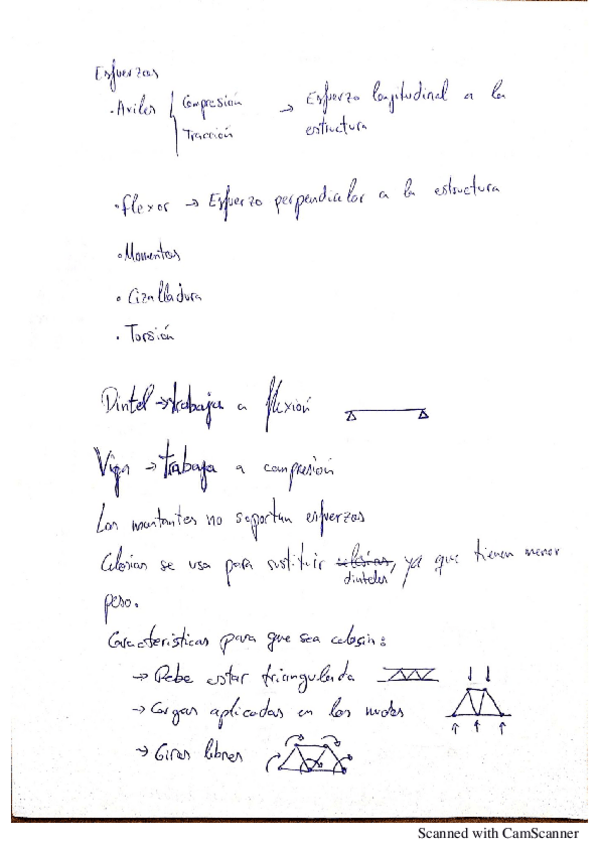 Esfuerzos
• Axiles { Compresión → Esfuerzo longitudinal a la
Tracción estructura
• flexor → Esfuerzo perpendicular a la estructura
• Momentos
• Cizalladura
• Torsión
Dintel → trabaja a flexión
Viga → trabaja a compresión
Los montantes no soportan esfuerzos
Celosias se usa para sustituir celosias, ya que tienen menor
dinteles
peso.
Caracteristicas para que sea celosia:
→ Debe estar triangulada
→ Cargas aplicadas en los nudos
→ Giros libres
Scanned with CamScanner